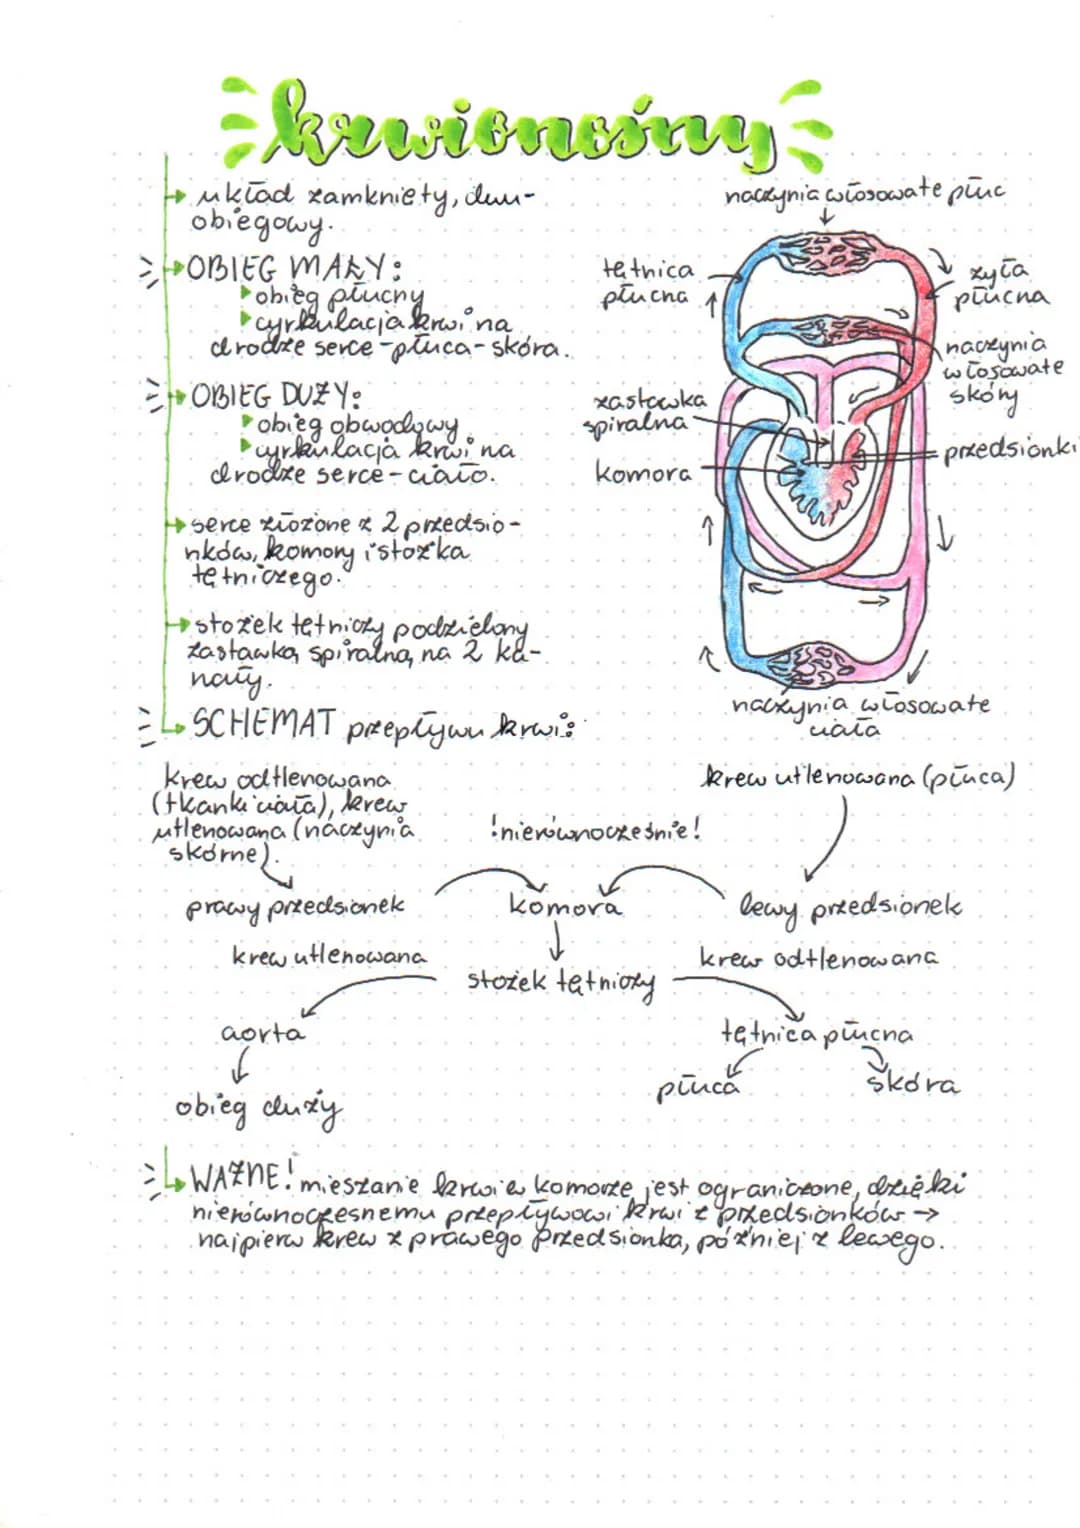 krwionośny
układ zamknięty, dwu-
obiegowy.
OBIEG MAŁY:
obieg płucny
cyrkulacja krwi na
drodze serce-płuca-skóra.
OBIEG DUŻY:
obieg obwodowy
cyrkulacja krwi na
drodze serce-ciało.
serce złożone z 2 przedsio-
nków, komory i stożka
tętniczego.
stożek tętniczy podzielony
zastawką spiralną na 2 ka-
nały.
naczynia włosowate płuc
tętnica
płucna
żyła
płucna
naczynia
włosowate
skóry
zastawka
spiralna
przedsionki
komora
naczynia włosowate
ciała
SCHEMAT przepływu krwi:
krew odtlenowana
(tkanki ciała), krew
utlenowana (naczynia
skórne).
!nierównocześnie!
krew utlenowana (płuca)
prawy przedsionek
komora
lewy przedsionek
krew utlenowana
stożek tętniczy
krew odtlenowana
aorta
tętnica płucna
obieg duży
płuca
skóra
WAŻNE! mieszanie krwi w komorze jest ograniczone, dzięki
nierównoczesnemu przepływowi krwi z przedsionków →
najpierw krew z prawego przedsionka, później z lewego.